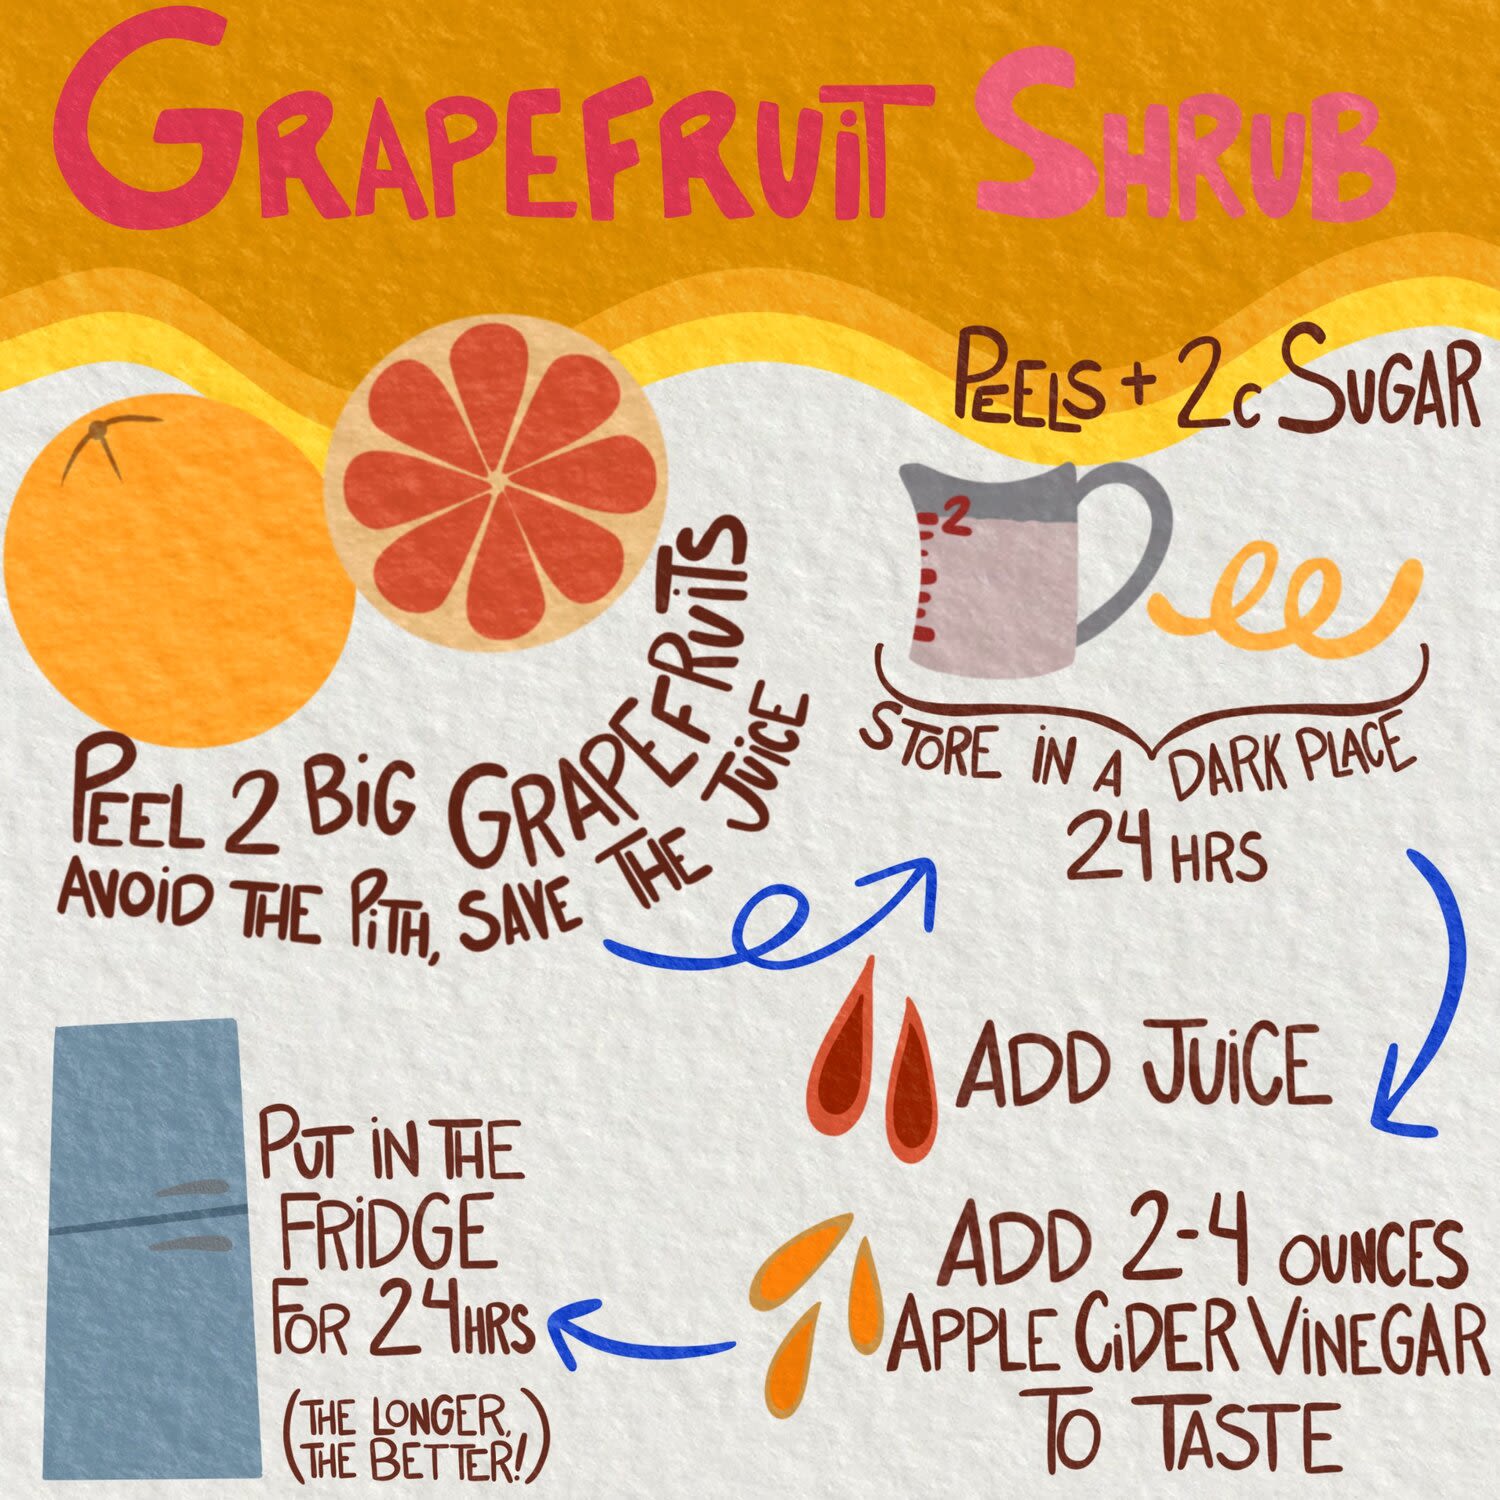 GRAPEFRUIT SHRUB
PEEL 2 BIG GRAPEFRUITS
AVOID THE PITH, SAVE THE JUICE
PEELS + 2C SUGAR
2
STORE IN A DARK PLACE
24 HRS
ADD JUICE
ADD 2-4 OUNCES
APPLE CIDER VINEGAR
TO TASTE
PUT IN THE
FRIDGE
FOR 24HRS
(THE LONGER,
THE BETTER!)